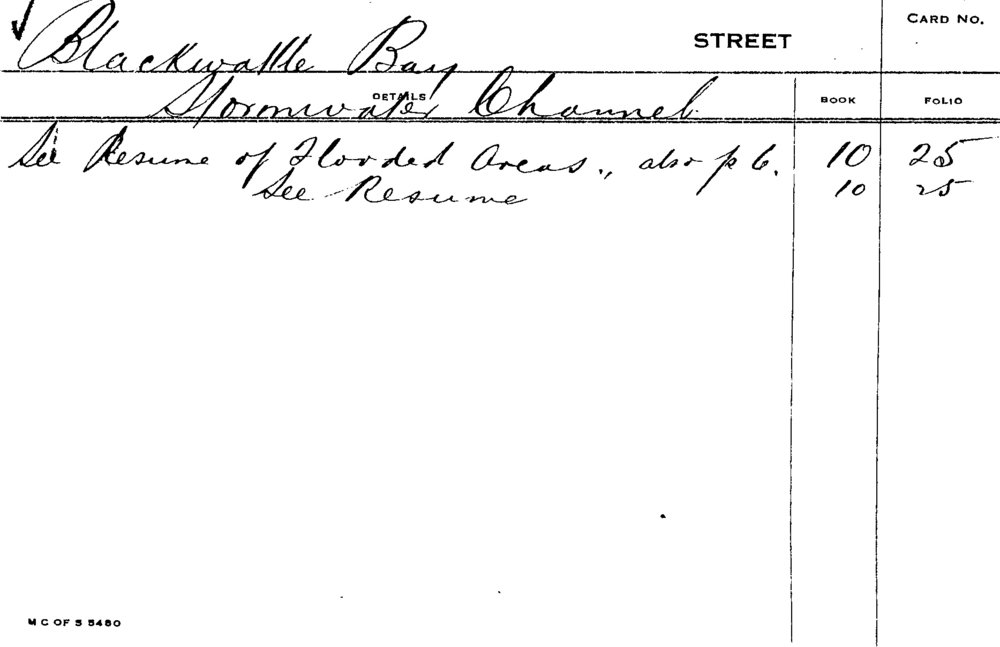 CARD NO.
Blackwattle Bay STREET
Stormwater Channel DETAILS BOOK FOLIO
See Resume of Flooded Areas., also p 6. 10 25
See Resume 10 25
M C OF S 5480